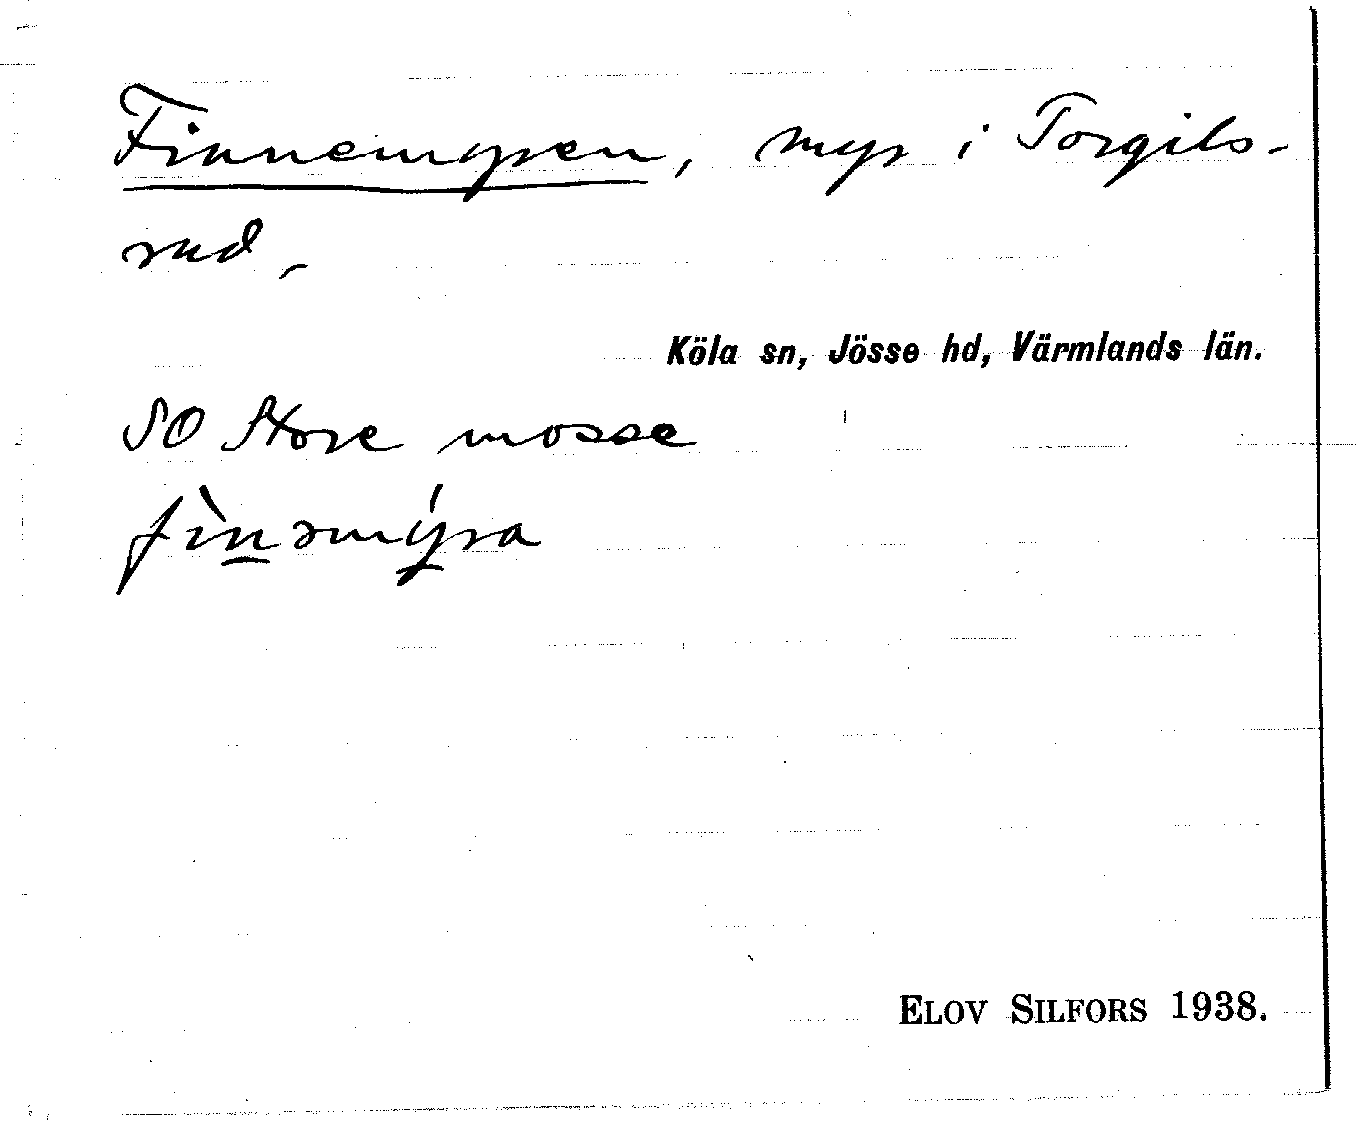 Finnemyren, myr i Torgils-
rud,
Köla sn, Jösse hd, Värmlands län.
SO Store mosse
fìn̲əmý̲ra
ELOV SILFORS 1938.